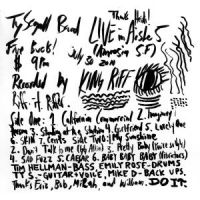 Ty Segall Band
LIVE in Aisle 5
Thank Utah!
Five Bucks!
(Amnesia S.F)
$ 9pm
July 30 2011
Recorded by KING RIFF
Riff it RIFF
Side One: 1 California Commercial 2. Imaginary
Person 3. Standing at the Station 4. Girlfriend 5. Lovely One
6. SKIN 7. Cents Side Two: 1 My Sunshine
2. Don't Talk to me (GG Allin) 3. Pretty Baby (You're so Ugly)
4. SAD FUZZ 5. CAESAR 6. BABY BABY BABY
TIM HELLMAN - BASS, EMILY ROSE - DRUMS
TY S - GUITAR + VOICE, MIKE D - BACK UPS.
Thanks Eric, Bob, Mitch, and William. DO IT.